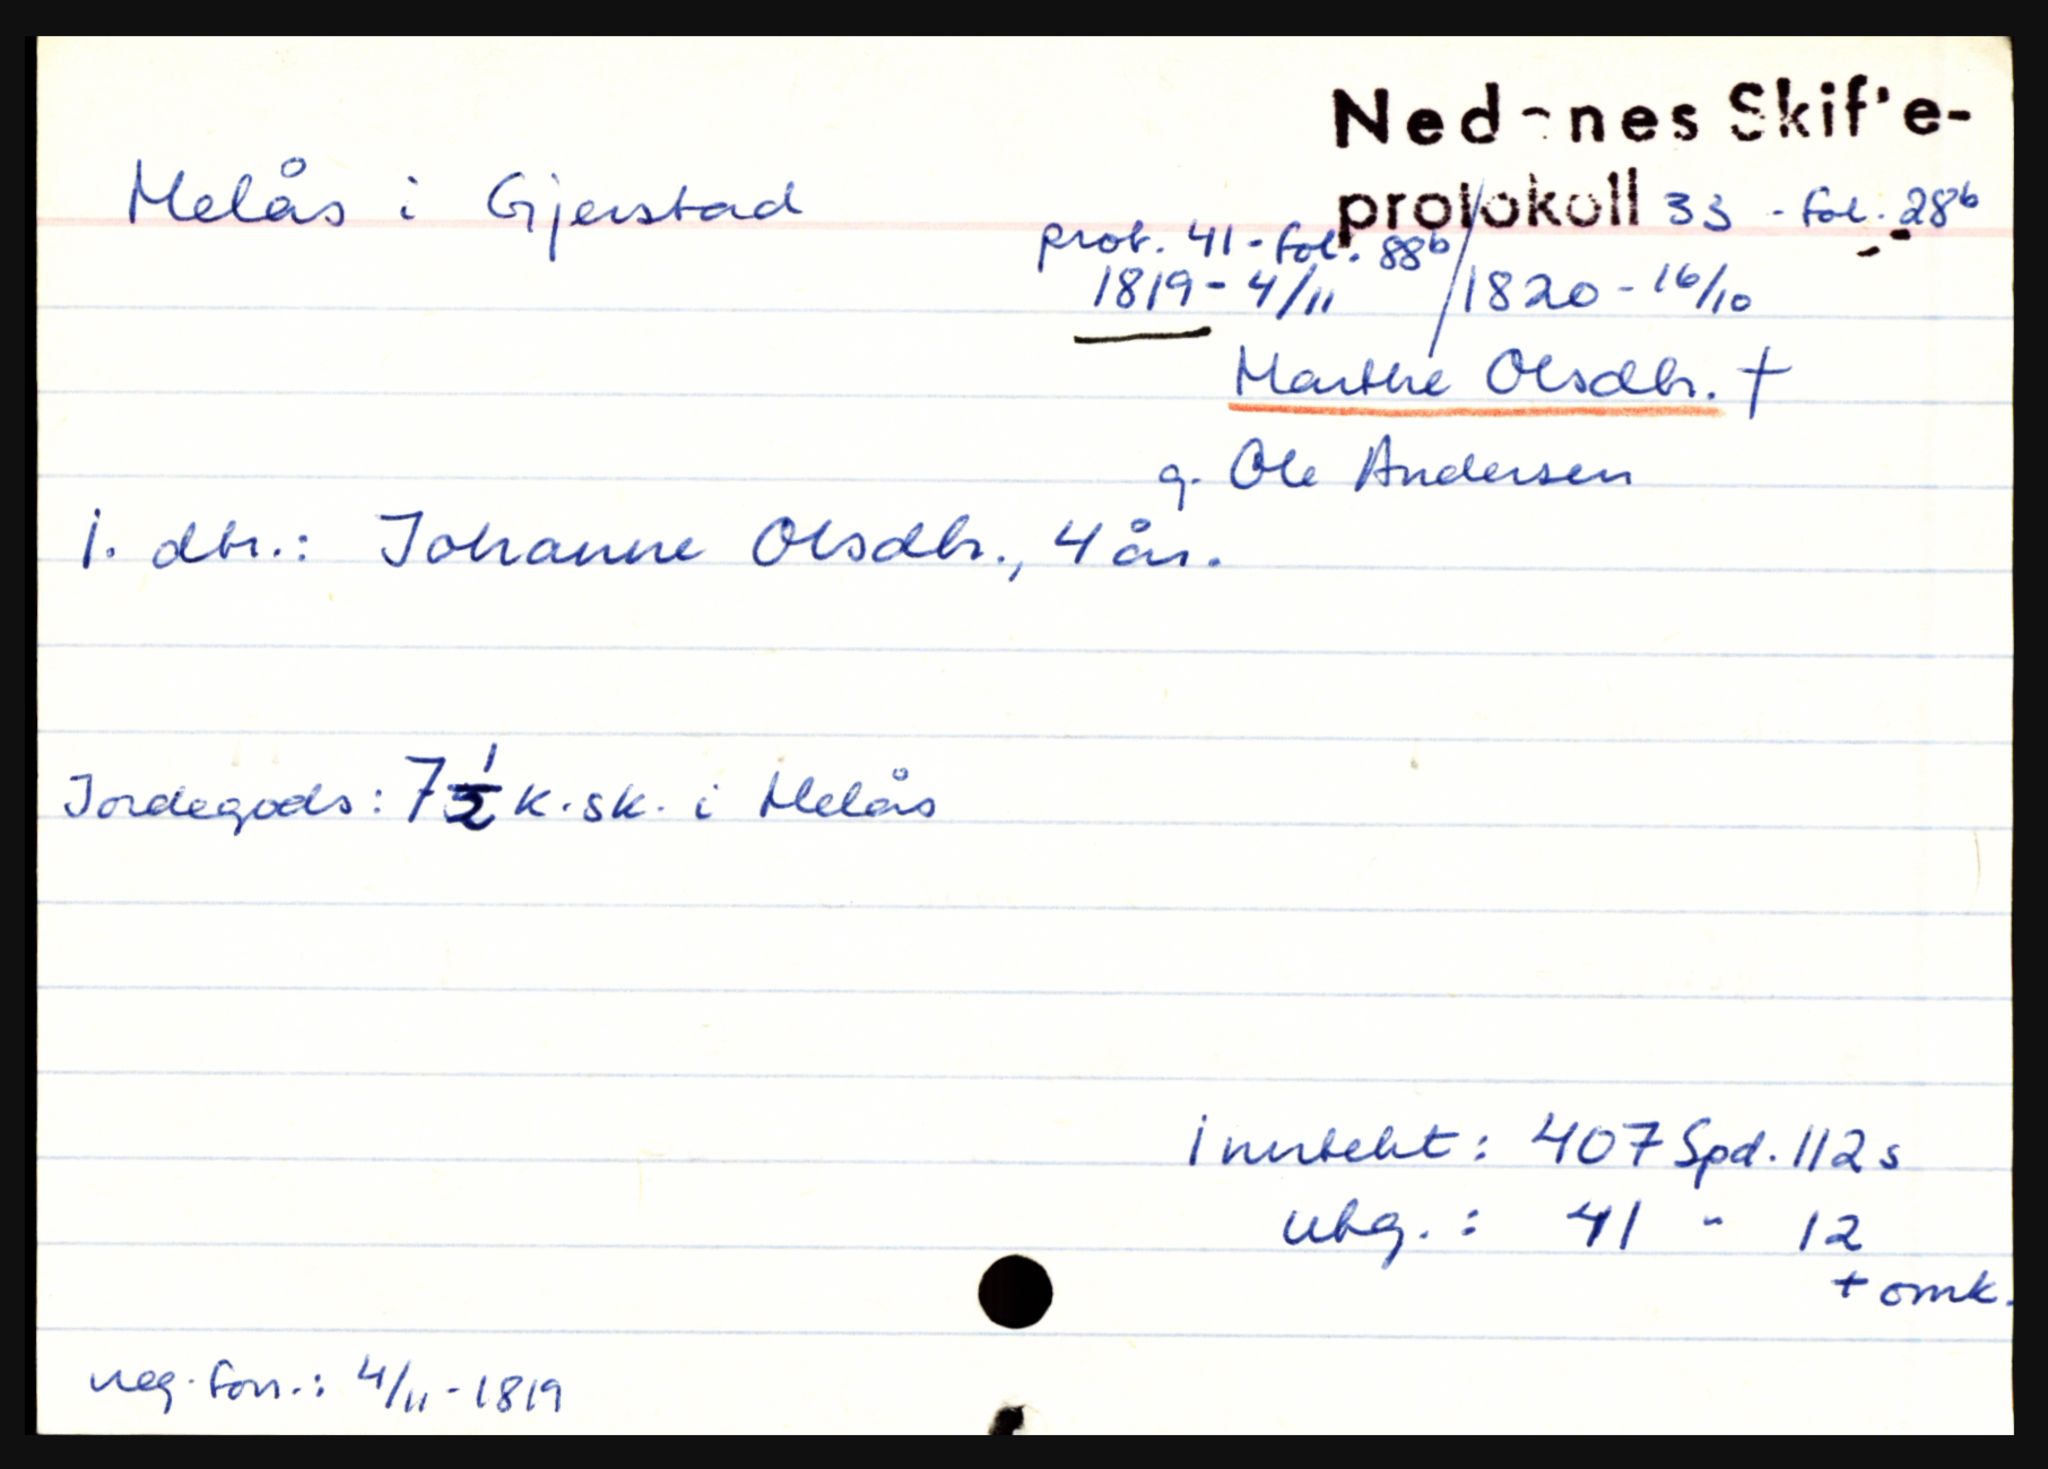 Nedenes Skifte-
Melås i Gjerstad
protokoll 33 - fol. 28b
prot. 41 - fol. 88b /
1819 - 4/11 / 1820 - 16/10
Marthe Olsdtr. †
g. Ole Andersen
1. dtr.: Johanne Olsdtr., 4 år.
Jordegods: 7 1/2 k. sk. i Melås
inntekt: 407 Spd. 112 s
utg.: 41 - 12
+ omk.
reg. forr.: 4/11 - 1819